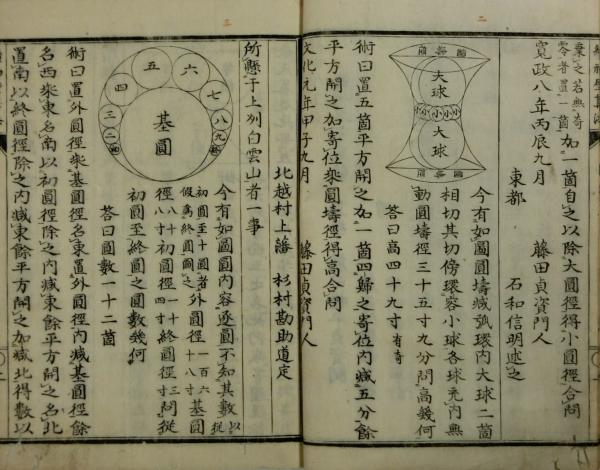 乘之若無奇
零者置一箇
加一箇自之以除大圓徑得小圓徑合問
寛政八年丙辰九月 藤田貞資門人
東都 石和信明述之
大球
小小小
大球
今有如圖圓壔減弧環內大球二箇
相切其切傍環容小球各球充內無
動圓壔徑三十五寸九分問高幾何
答曰高四十九寸有奇
術曰置五箇平方開之加一箇四歸之寄位內減五分餘
平方開之加寄位乘圓壔徑得高合問
文化元年甲子九月 藤田貞資門人
北越村上藩 杉村勘助道定
所懸于上州白雲山者一事
二
三
四
五
六
七
八
九
基圓
今有如圖圓內容逐圓不知其數以從
初圓至十圓者假爲終圓圖之外圓徑一百六十八寸基圓
初圓徑 終圓徑 問從
初圓至終圓之圓數幾何
答曰圓數一十二箇
術曰置外圓徑乘基圓徑名東置外圓徑內減基圓徑餘
名西乘東名南以初圓徑除之內減東餘平方開之名北
置南以終圓徑除之內減東餘平方開之加減北得數以